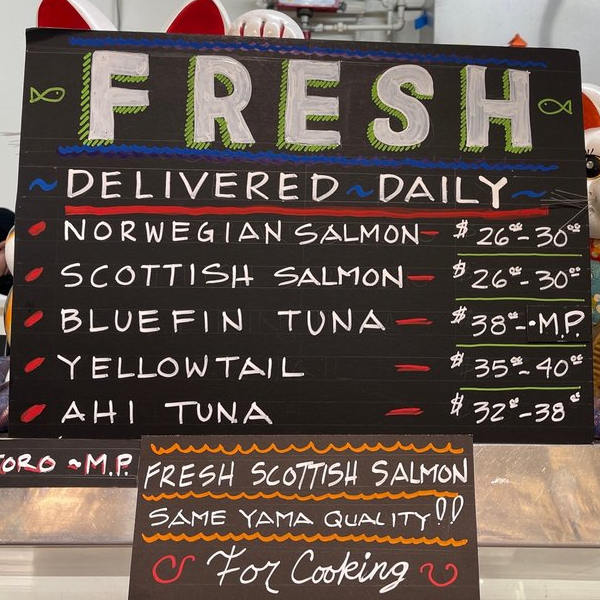 FRESH
~ DELIVERED ~ DAILY ~
NORWEGIAN SALMON — $26⁰⁰-30⁰⁰
SCOTTISH SALMON — $26⁰⁰-30⁰⁰
BLUEFIN TUNA — $38⁰⁰-·M.P.
YELLOWTAIL — $35⁰⁰-40⁰⁰
AHI TUNA — $32⁰⁰-38⁰⁰
TORO ~M.P.
FRESH SCOTTISH SALMON
SAME YAMA QUALITY!!
For Cooking